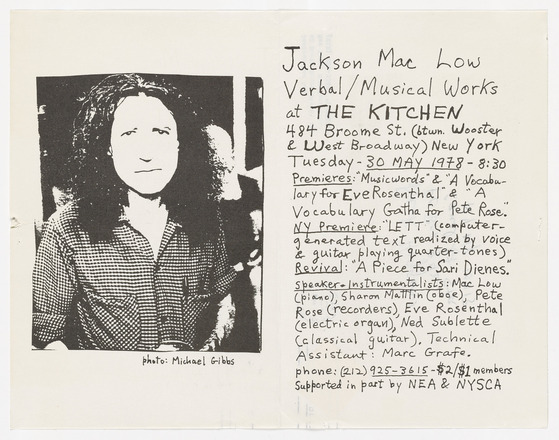 Jackson Mac Low
Verbal/Musical Works
at THE KITCHEN
484 Broome St. (btwn. Wooster
& West Broadway) New York
Tuesday - 30 MAY 1978 - 8:30
Premieres: "Musicwords" & "A Vocabu-
lary for Eve Rosenthal" & "A
Vocabulary Gatha for Pete Rose."
NY Premiere: "LETT" (computer-
generated text realized by voice
& guitar playing quarter-tones)
Revival: "A Piece for Sari Dienes."
Speaker-Instrumentalists: Mac Low
(piano), Sharon Mattlin (oboe), Pete
Rose (recorders), Eve Rosenthal
(electric organ), Ned Sublette
(classical guitar), Technical
Assistant: Marc Grafe.
phone: (212) 925-3615 - $2/$1 members
Supported in part by NEA & NYSCA
photo: Michael Gibbs